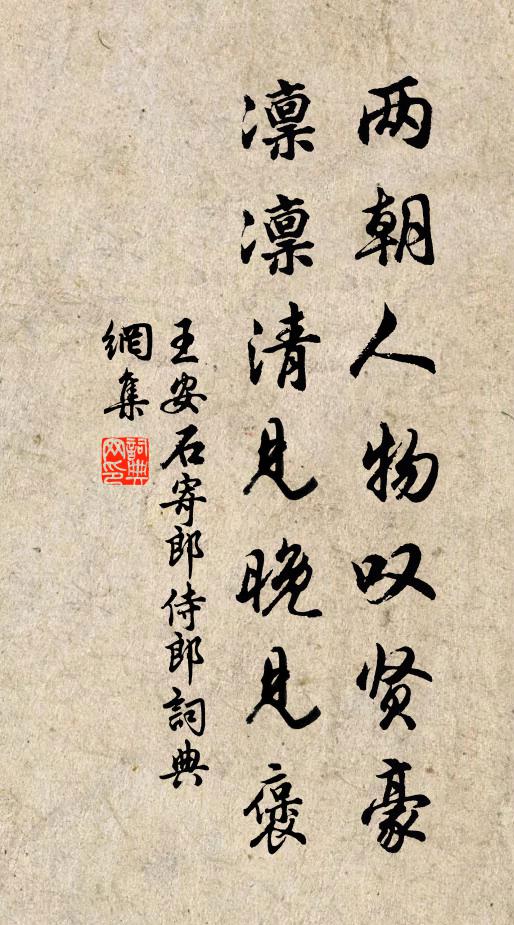 两朝人物叹贤豪
凛凛清见晚见褒
王安石寄郎侍郎詞典
網集
詞典
网印